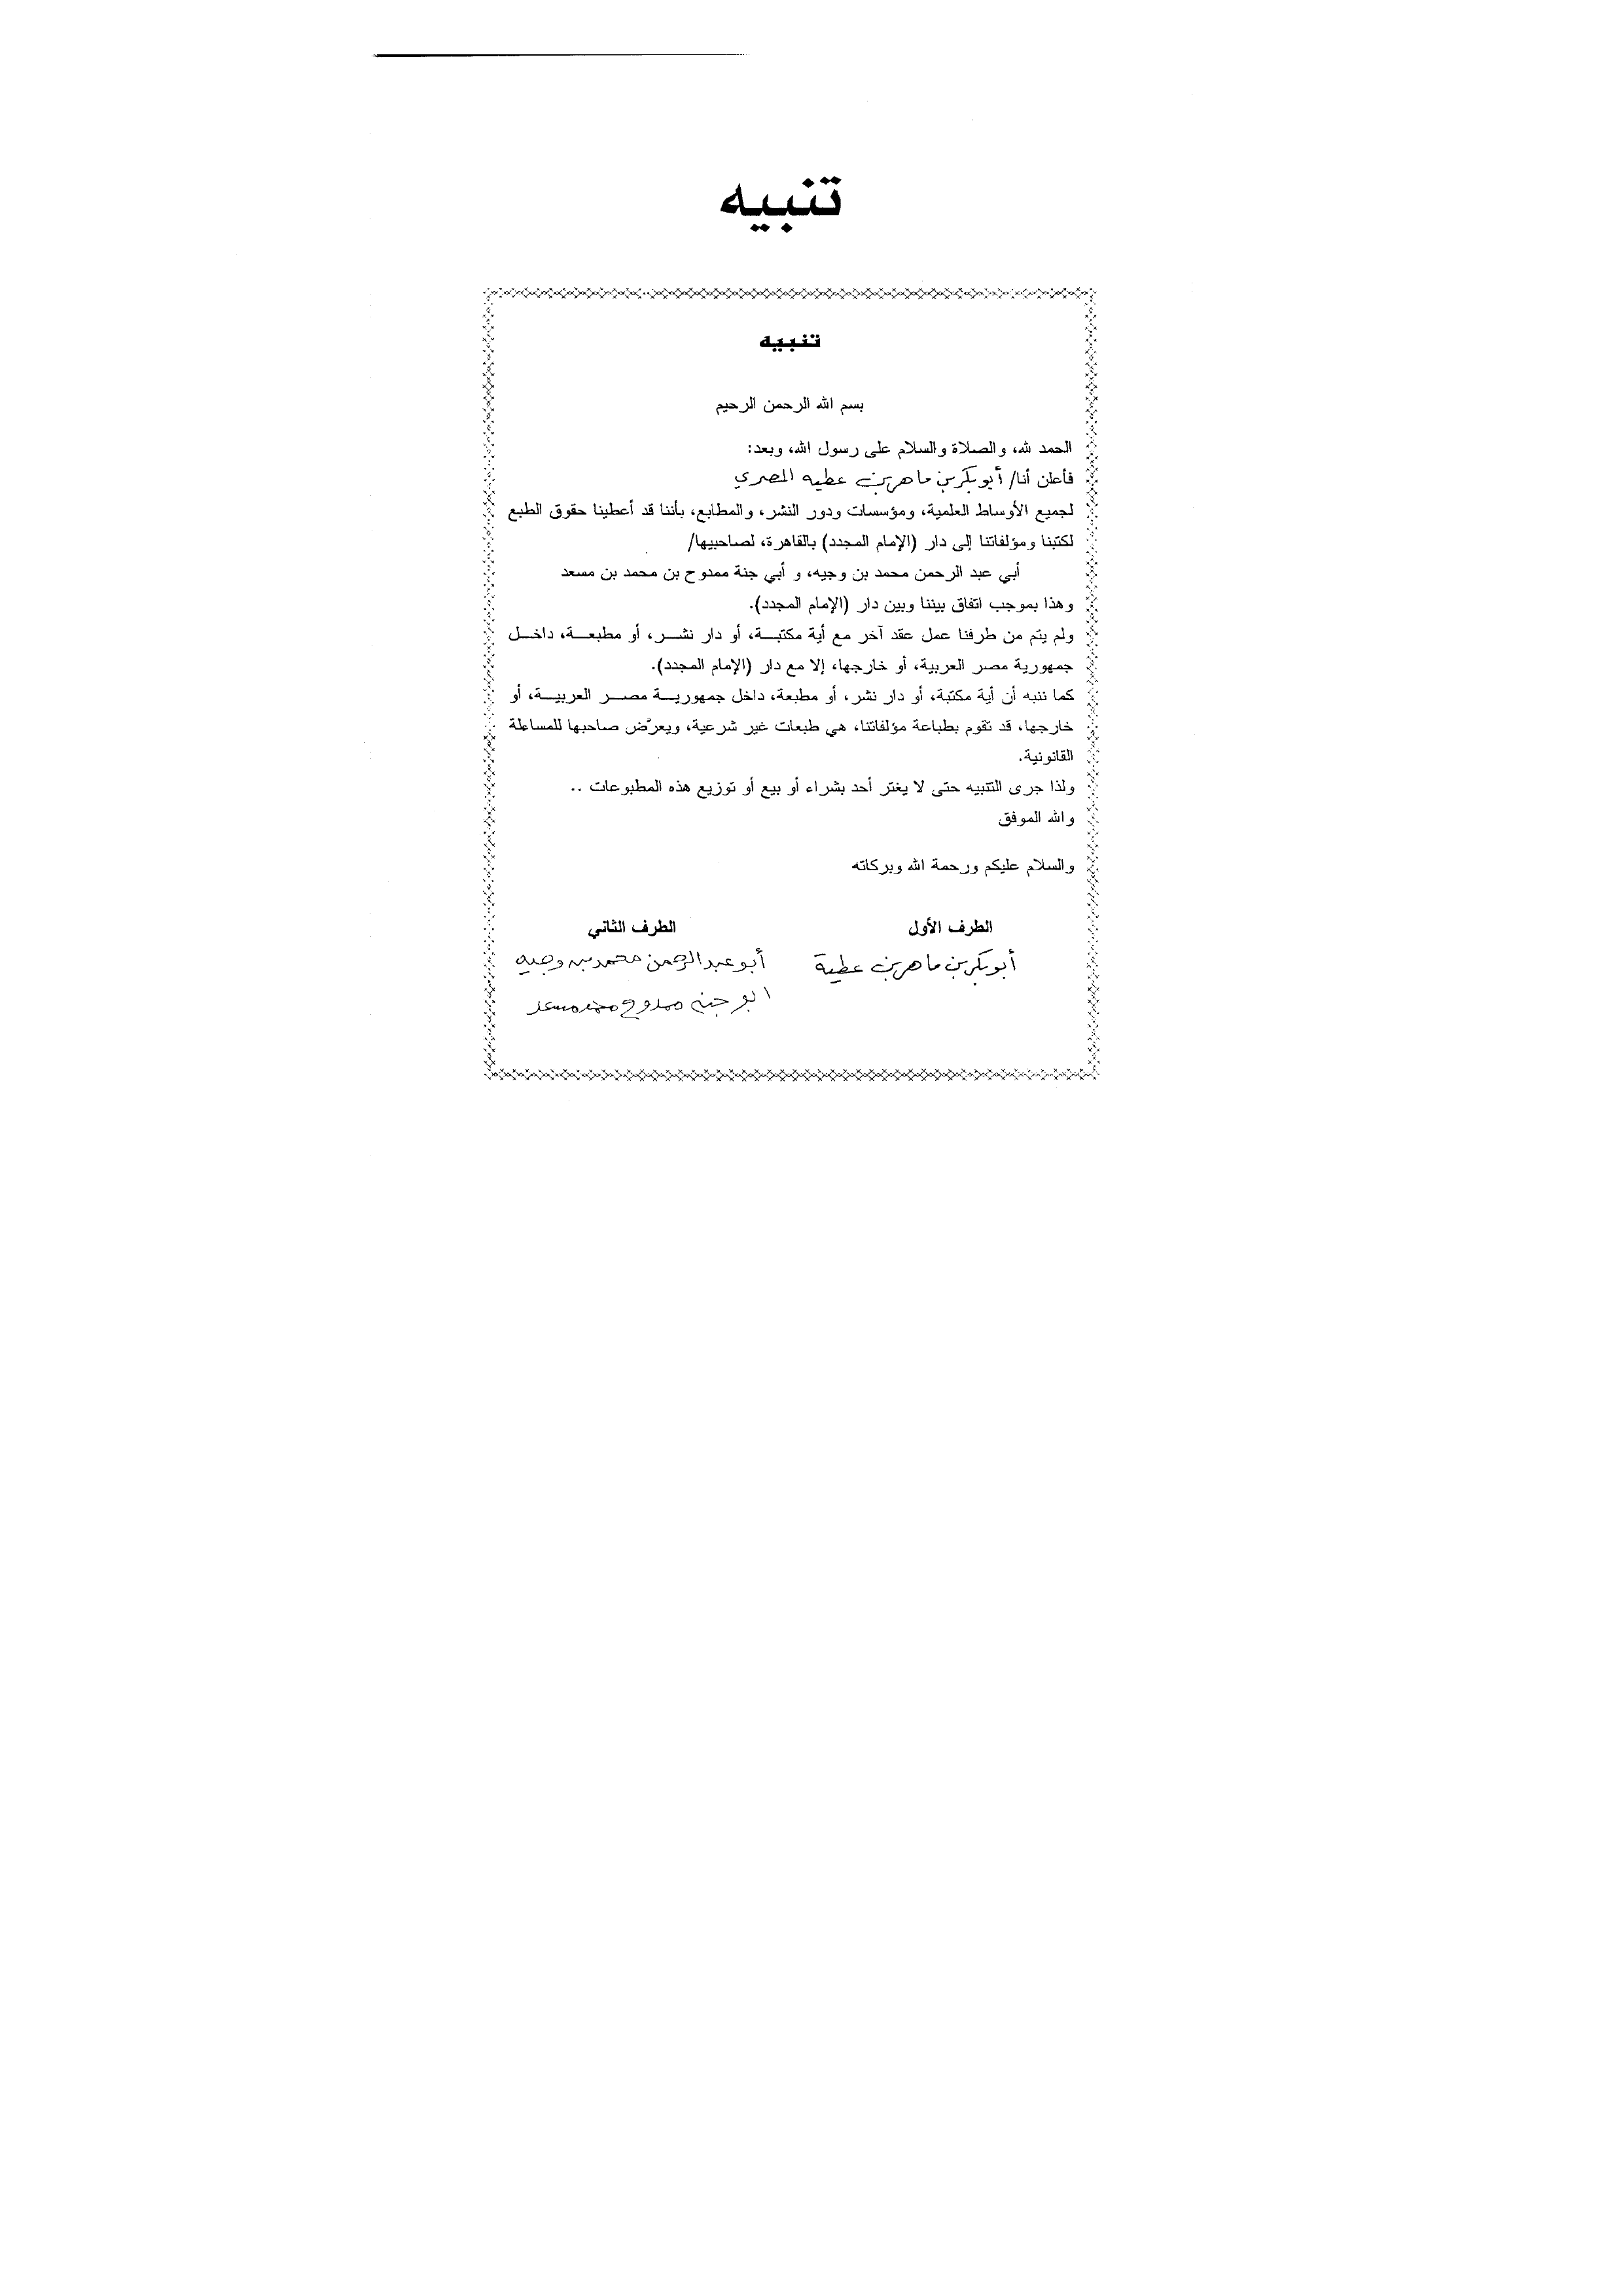 تنبيه
تنبيه
بسم الله الرحمن الرحيم
الحمد لله، والصلاة والسلام على رسول الله، وبعد:
فأعلن أنا/ أبو بكر بن ماهر بن عطيه المصري
لجميع الأوساط العلمية، ومؤسسات ودور النشر، والمطابع، بأننا قد أعطينا حقوق الطبع
لكتبنا ومؤلفاتنا إلى دار (الإمام المجدد) بالقاهرة، لصاحبيها/
أبي عبد الرحمن محمد بن وجيه، و أبي جنة ممدوح بن محمد بن مسعد
وهذا بموجب اتفاق بيننا وبين دار (الإمام المجدد).
ولم يتم من طرفنا عمل عقد آخر مع أية مكتبـــة، أو دار نشـــر، أو مطبعـــة، داخـــل
جمهورية مصر العربية، أو خارجها، إلا مع دار (الإمام المجدد).
كما ننبه أن أية مكتبة، أو دار نشر، أو مطبعة، داخل جمهوريـــة مصـــر العربيـــة، أو
خارجها، قد تقوم بطباعة مؤلفاتنا، هي طبعات غير شرعية، ويعرّض صاحبها للمساءلة
القانونية.
ولذا جرى التنبيه حتى لا يغتر أحد بشراء أو بيع أو توزيع هذه المطبوعات ..
والله الموفق
والسلام عليكم ورحمة الله وبركاته
الطرف الأول الطرف الثاني
أبو بكر بن ماهر بن عطية أبو عبد الرحمن محمد بن وجيه
ابو جنه ممدوح محمد مسعد